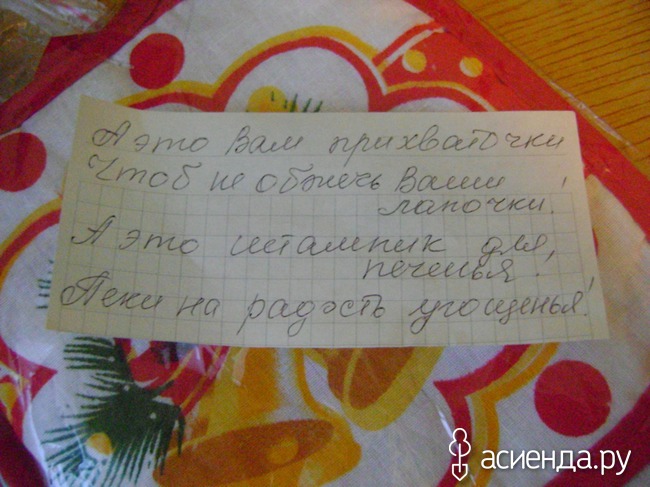 А это Вам прихваточки
Чтоб не обжечь Ваши
лапочки!
А это штампик для
печенья!
Пеки на радость угощенья!
асиенда.ру